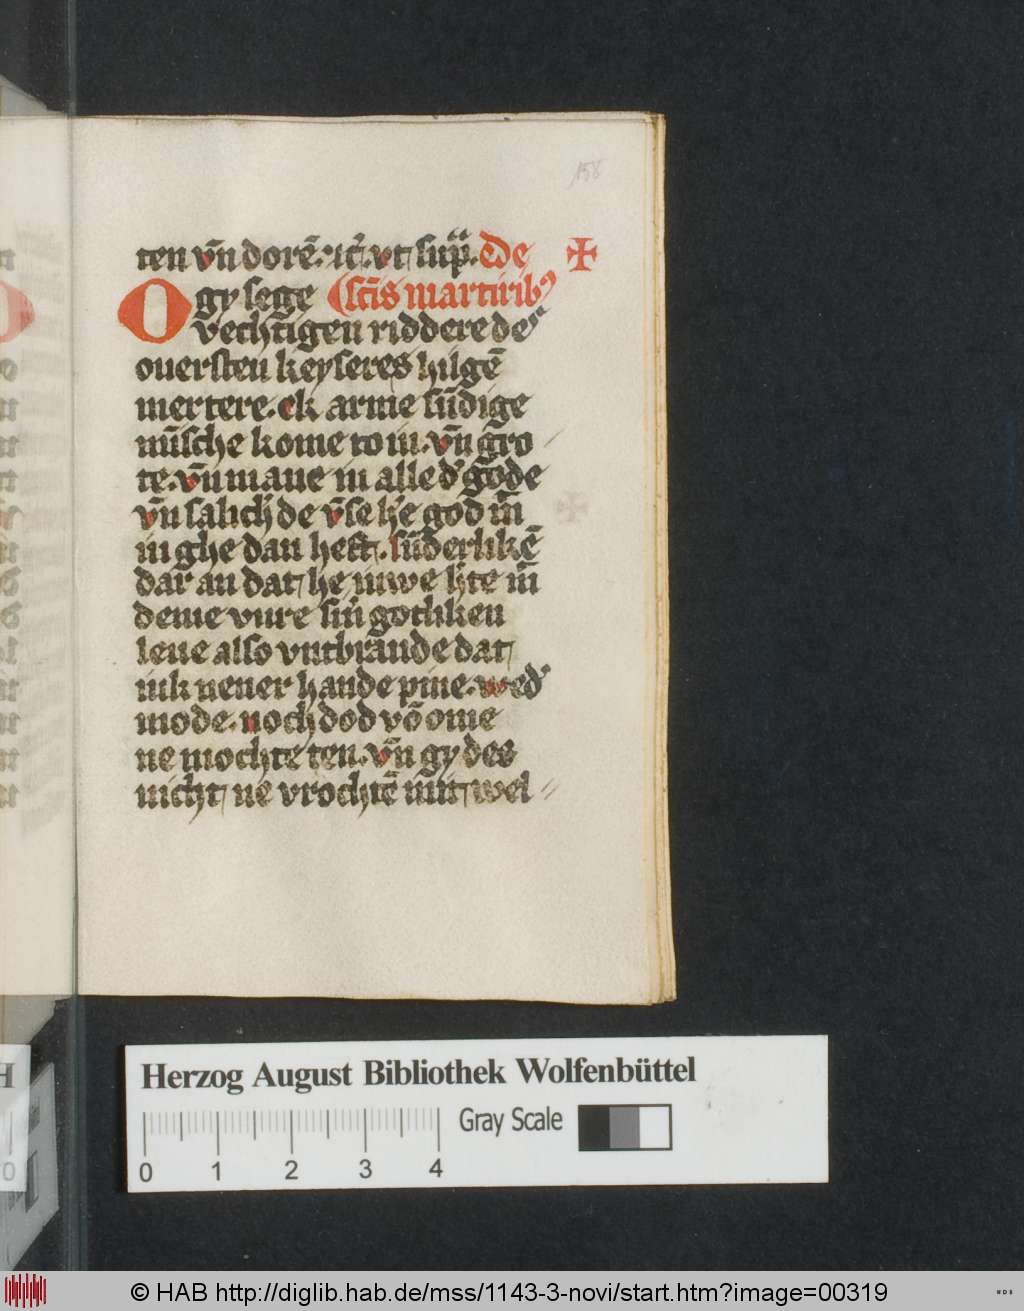 158
ten vn̄ dorē · it̄ · vt sup̄ · De
O gy sege sct̄is martirib9
vechtigen riddere des
ouersten keyseres hilgē
mertere · ek arme sūdige
mīsche kome to iu · vn̄ gro
te · vn̄ mane iu alle d' gode
vn̄ salich' de vn̄se h'e god m̄
iu ghe dan heft · sūderlikē
dar an dat he iuwe h'te m̄
deme vure sin̄ gotliken
leue also vntbrande dat
iuk nener hande pine · wed'
mode · noch dod vō ome
ne mochte ten · vn̄ gy des
nicht ne vrochtē mit wel
Herzog August Bibliothek Wolfenbüttel
Gray Scale
0 1 2 3 4
© HAB http://diglib.hab.de/mss/1143-3-novi/start.htm?image=00319